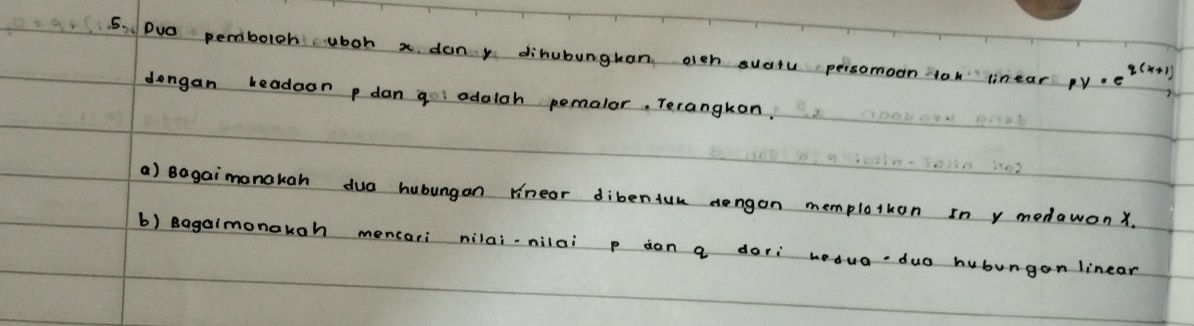 5. Dua pemboleh ubah x dan y dihubungkan oleh suatu persamaan tak linear py = e^q(x+1),
dengan keadaan p dan q adalah pemalar. Terangkan.
a) Bagaimanakah dua hubungan linear dibentuk dengan memplotkan In y melawan X.
b) Bagaimanakah mencari nilai-nilai p dan q dari kedua-dua hubungan linear